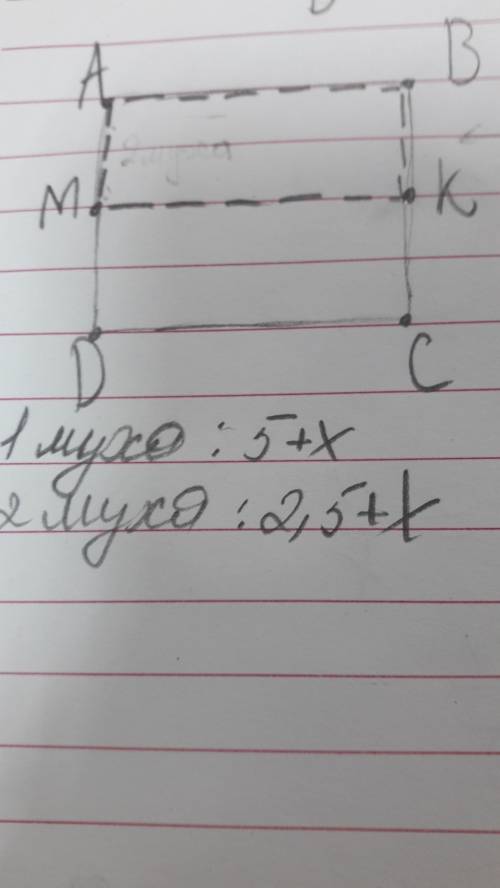 A B
M K
D C
1 муха : 5+x
2 муха : 2,5+x